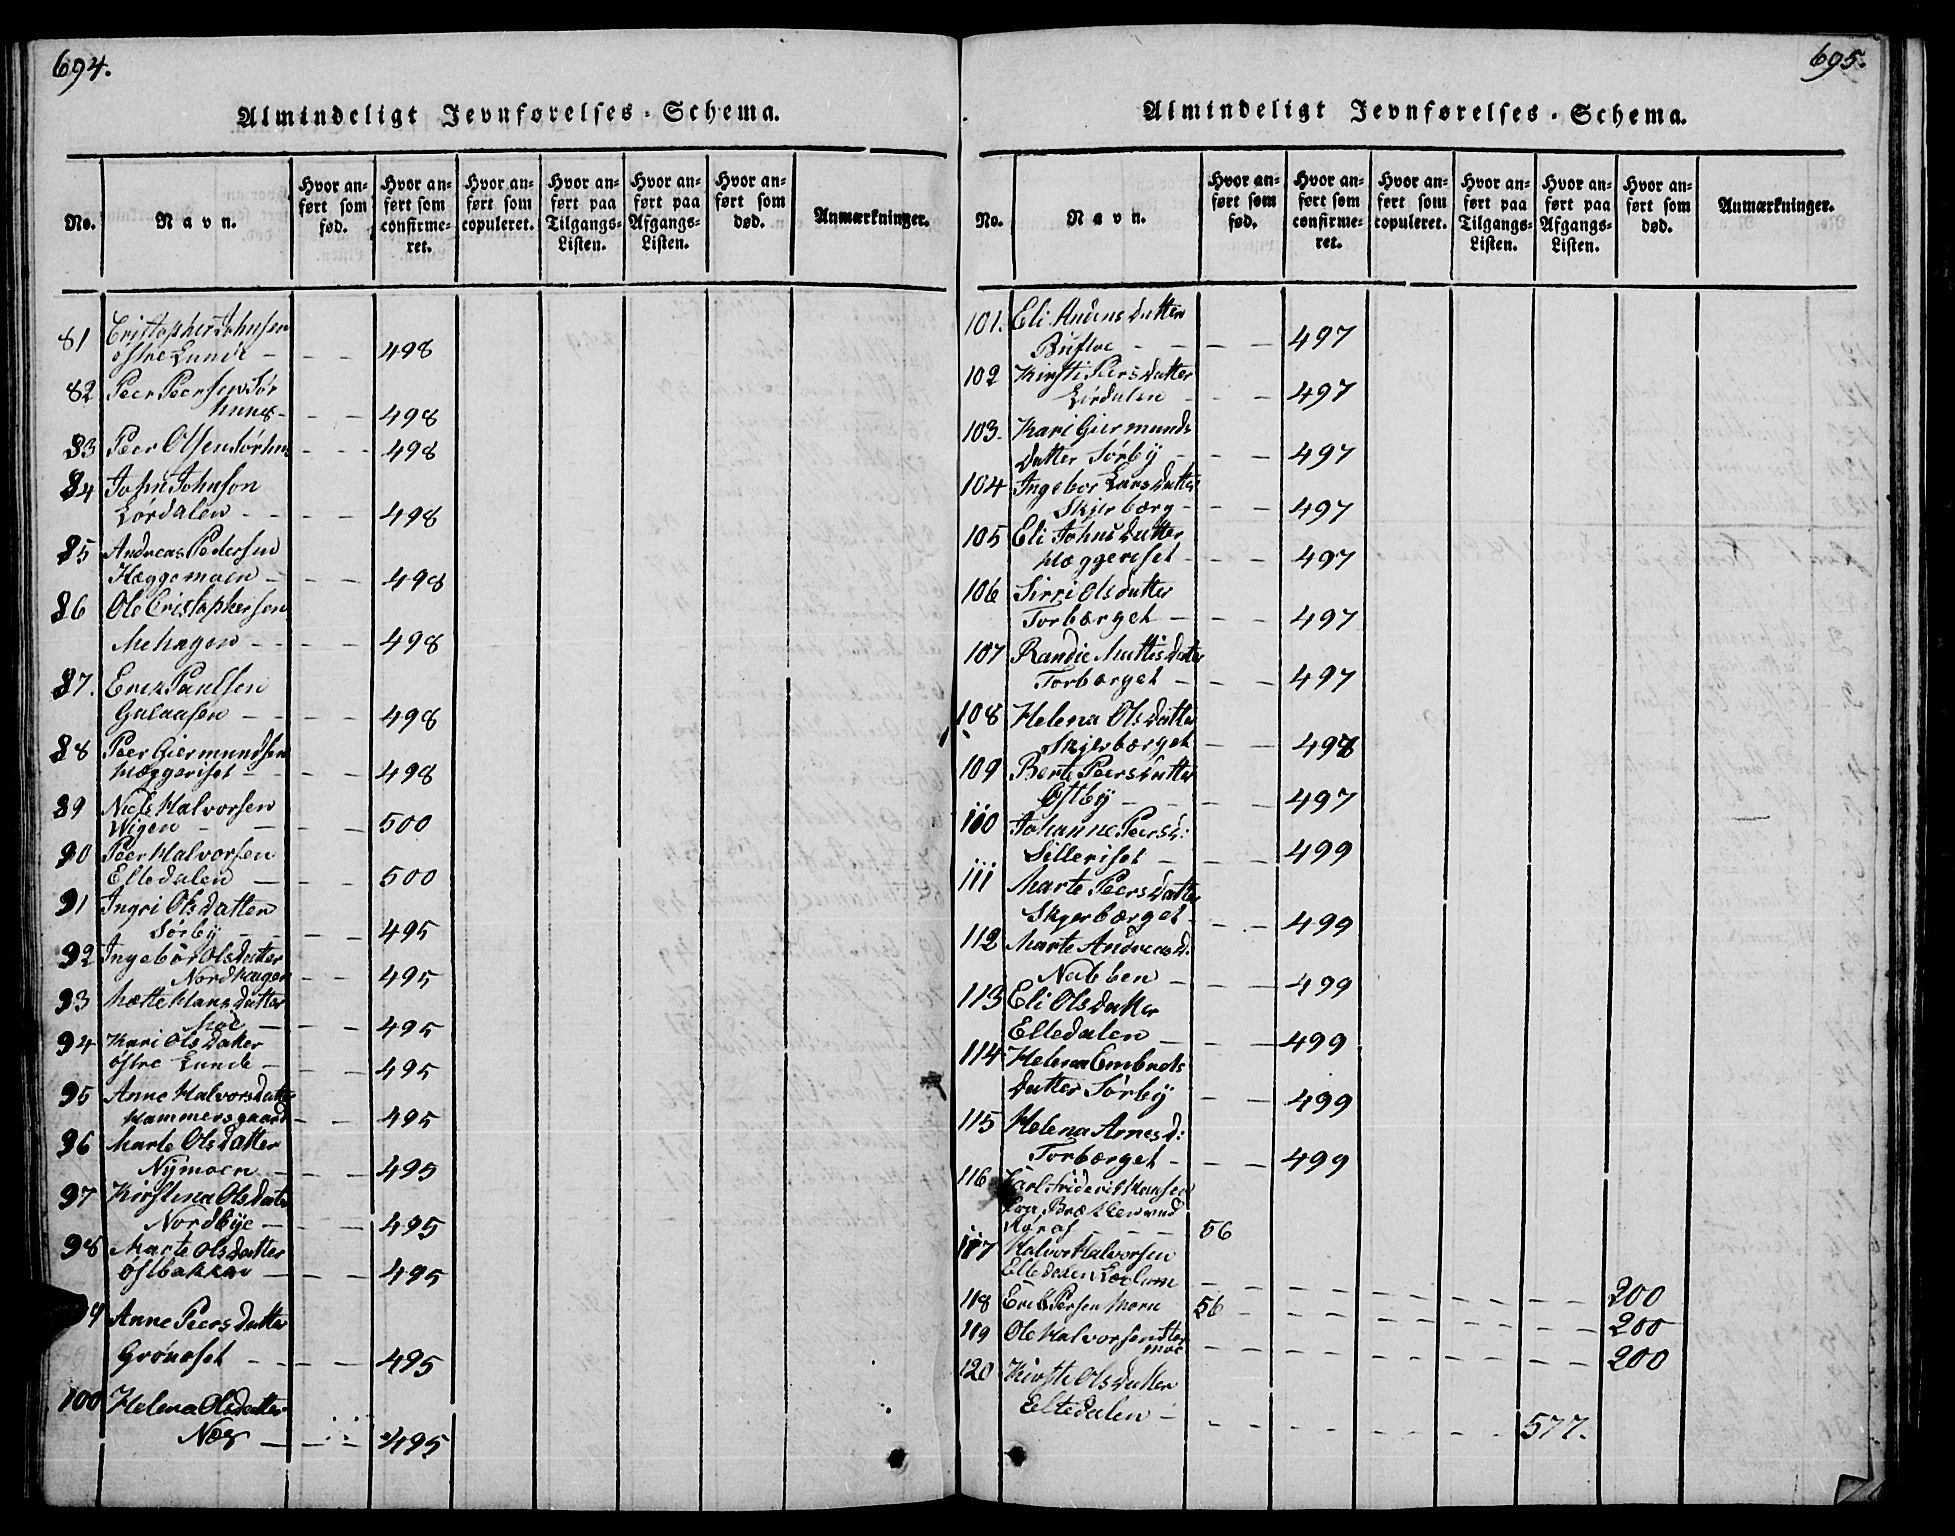 694.
Almindeligt Jevnførelses-Schema.
No. Navn. Hvor anført som fød. Hvor anført som confirmeret. Hvor anført som copuleret. Hvor anført paa Tilgangs-Listen. Hvor anført paa Afgangs-Listen. Hvor anført som død. Anmærkninger.
81 Cristopher Johnsen
østre Lunde - - - 498
82 Peer Peersen Sør
huus - - - 498
83 Peer Olsen - - - 498
84 John Johnson
Lørdalen - - - 498
85 Andreas Pedersen
Hæggemoen - - - 498
86 Ole Cristophersen
Mehagen - - - 498
87. Erik Paulsen
Galaasen - - - 498
88 Peer Giermundsen
Hæggeriset - - - 498
89 Niels Halvorsen
Wigen - - - 500
90 Peer Halvorsen
Eltedalen - - - 500
91 Ingri Olsdatter
Sørby - - - 495
92 Ingebor Olsdatter
Nordhaugen - - 495
93 Mætte Hansdatter
Moe - - - 495
94 Kari Olsdatter
østre Lunde - - - 495
95 Anne Halvorsdatter
Hammersgaard - - 495
96 Marte Olsdatter
Nymoen - - - 495
97 Kirstina Olsdatter
Nordbye - - - 495
98 Marte Olsdatter
Østbakken - - - 495
99 Anne Peersdatter
Grønoset - - - 495
100 Helena Olsdatter
Næs - - - 495
695.
Almindeligt Jevnførelses-Schema.
No. Navn. Hvor anført som fød. Hvor anført som confirmeret. Hvor anført som copuleret. Hvor anført paa Tilgangs-Listen. Hvor anført paa Afgangs-Listen. Hvor anført som død. Anmærkninger.
101. Eli datter
- - - 497
102 Kirsti Peersdatter
Lørdalen - - - 497
103. Kari Giermunds
datter Sørby - - - 497
104 Ingebor Larsdatter
Skjerbærg - - - 497
105 Eli Johnsdatter
Hæggeriset - - - 497
106 Sirri Olsdatter
Torbærget - - - 497
107 Randie Mattisdatter
Torbærget - - - 497
108 Helena Olsdatter
Skjerbærget - - 497
109 Berte Peersdatter
Østby - - - 497
110 Johanne Peersd:
Silleriset - - - 499
111 Marte Peersdatter
Skjerbærget - - - 499
112 Marte Andreasd:
Nabben - - - 499
113 Eli Olsdatter
Eltedalen - - - 499
114 Helena Embrets
datter Sørby - - 499
115 Helena Arnesd:
Torbærget - - - 499
116 Carl Friderik Hansen
fra
- - - 56
117 Halvor Halvorsen
Eltedalen - - - 200
118 Erik Persen Moren 56 - - - 200
119 Ole Halvorsen
moe - - - 200
120 Kirsti Olsdatter
Eltedalen - - - 577.